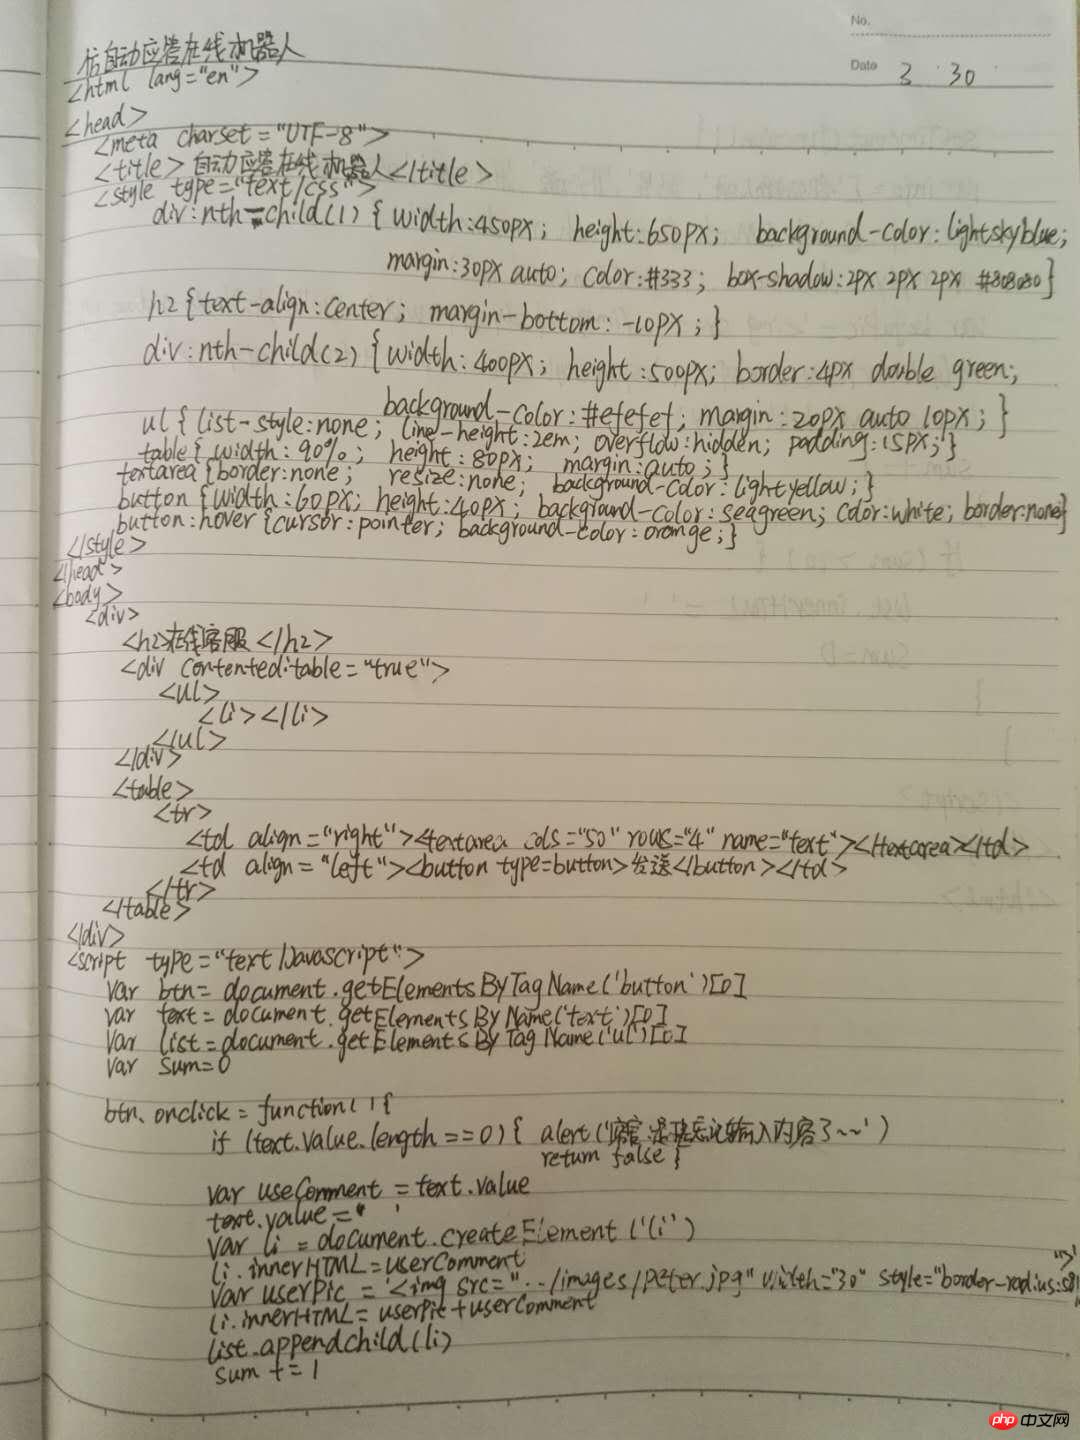 No.
Date 3 30
仿自动应答在线机器人
<html lang="en">
<head>
<meta charset="UTF-8">
<title>自动应答在线机器人</title>
<style type="text/css">
div:nth-child(1) { width:450px; height:650px; background-color:lightskyblue;
margin:30px auto; color:#333; box-shadow:2px 2px 2px #808080}
h2 {text-align:center; margin-bottom:-10px;}
div:nth-child(2) {width:400px; height:500px; border:4px double green;
background-color:#efefef; margin:20px auto 10px;}
ul { list-style:none; line-height:2em; overflow:hidden; padding:15px;}
table{ width:90%; height:80px; margin:auto;}
textarea {border:none; resize:none; background-color:lightyellow;}
button {width:60px; height:40px; background-color:seagreen; color:white; border:none}
button:hover {cursor:pointer; background-color:orange;}
</style>
</head>
<body>
<div>
<h2>在线客服</h2>
<div contenteditable="true">
<ul>
<li></li>
</ul>
</div>
<table>
<tr>
<td align="right"><textarea cols="50" rows="4" name="text"></textarea></td>
<td align="left"><button type=button>发送</button></td>
</tr>
</table>
</div>
<script type="text/javascript">
var btn= document.getElementsByTagName('button')[0]
var text=document.getElementsByName('text')[0]
var list=document.getElementsByTagName('ul')[0]
var sum=0
btn.onclick = function(){
if (text.value.length==0) { alert('客官是忘记输入内容了~~')
return false }
var useComment = text.value
text.value=''
var li = document.createElement('li')
li.innerHTML=userComment
var userPic = '<img src="../images/peter.jpg" width="30" style="border-radius:50%">'
li.innerHTML= userPic+userComment
list.appendChild(li)
sum += 1
php 中文网